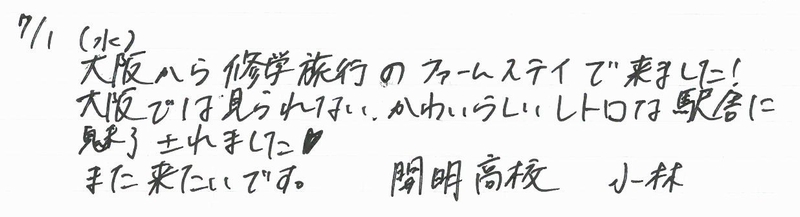 7/1 (水)
大阪から修学旅行のファームステイで来ました!
大阪では見られない、かわいらしいレトロな駅舎に
魅了されました♥
また来たいです。 開明高校 小林